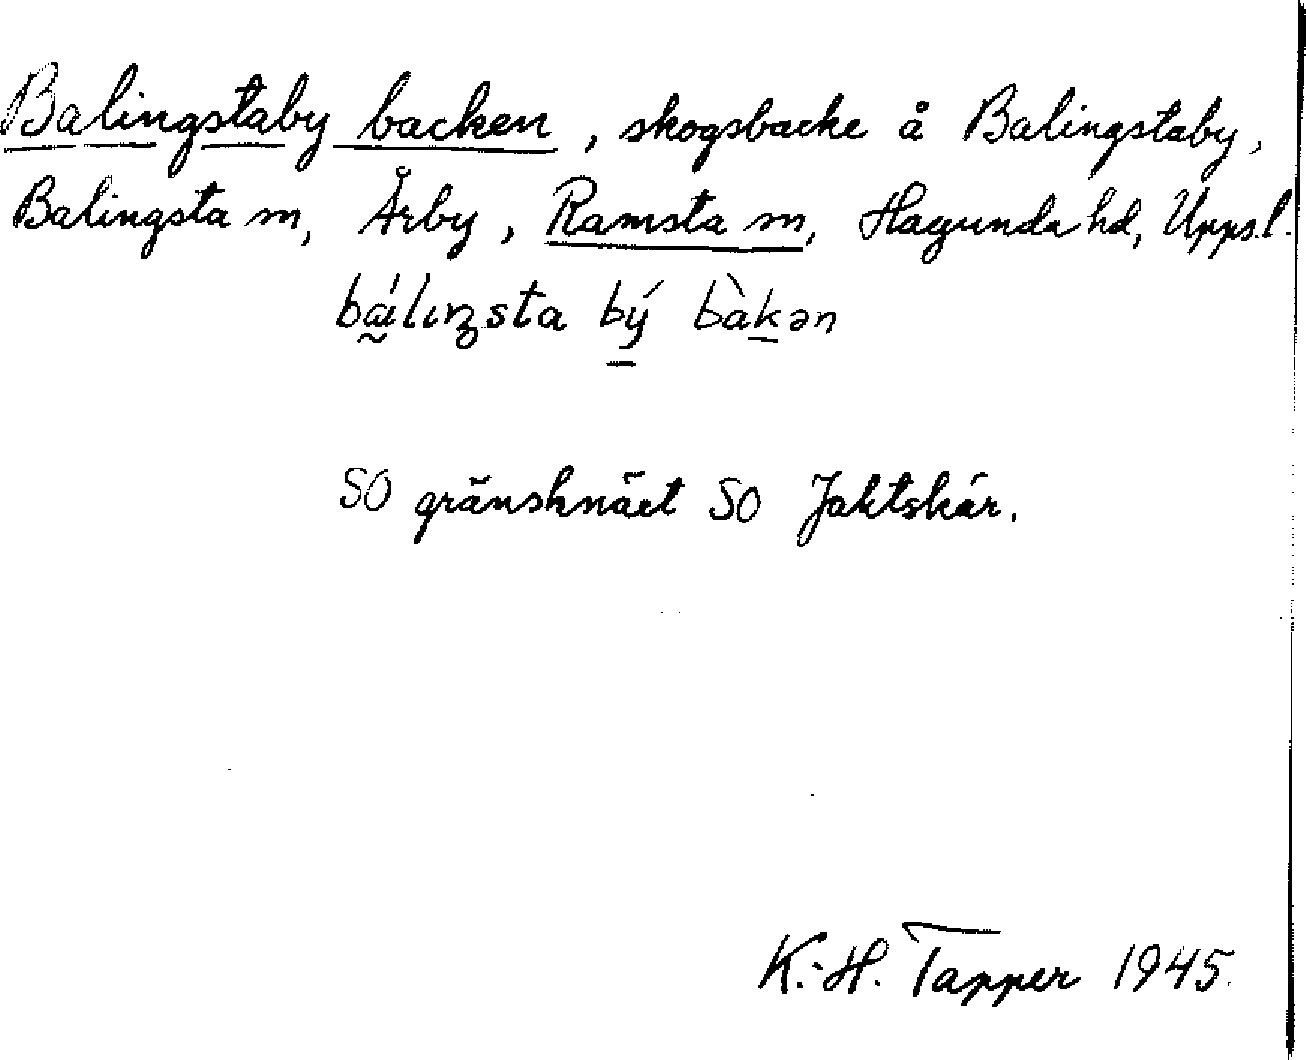 Balingstaby backen, skogsbacke å Balingstaby,
Balingsta sn, Årby, Ramsta sn, Hagunda hd, Uppsl.
bálıŋsta bý bàkən
SO gränsknäet SO Jaktskär.
K.-H. Tapper 1945.